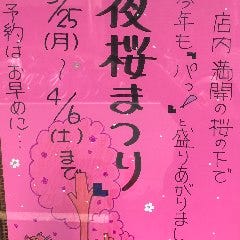 店内 満開の桜の下で
今年も、パっ!と盛りあがりまし
夜桜まつり
/25(月)~
4/6(土)まで
予約はお早めに…